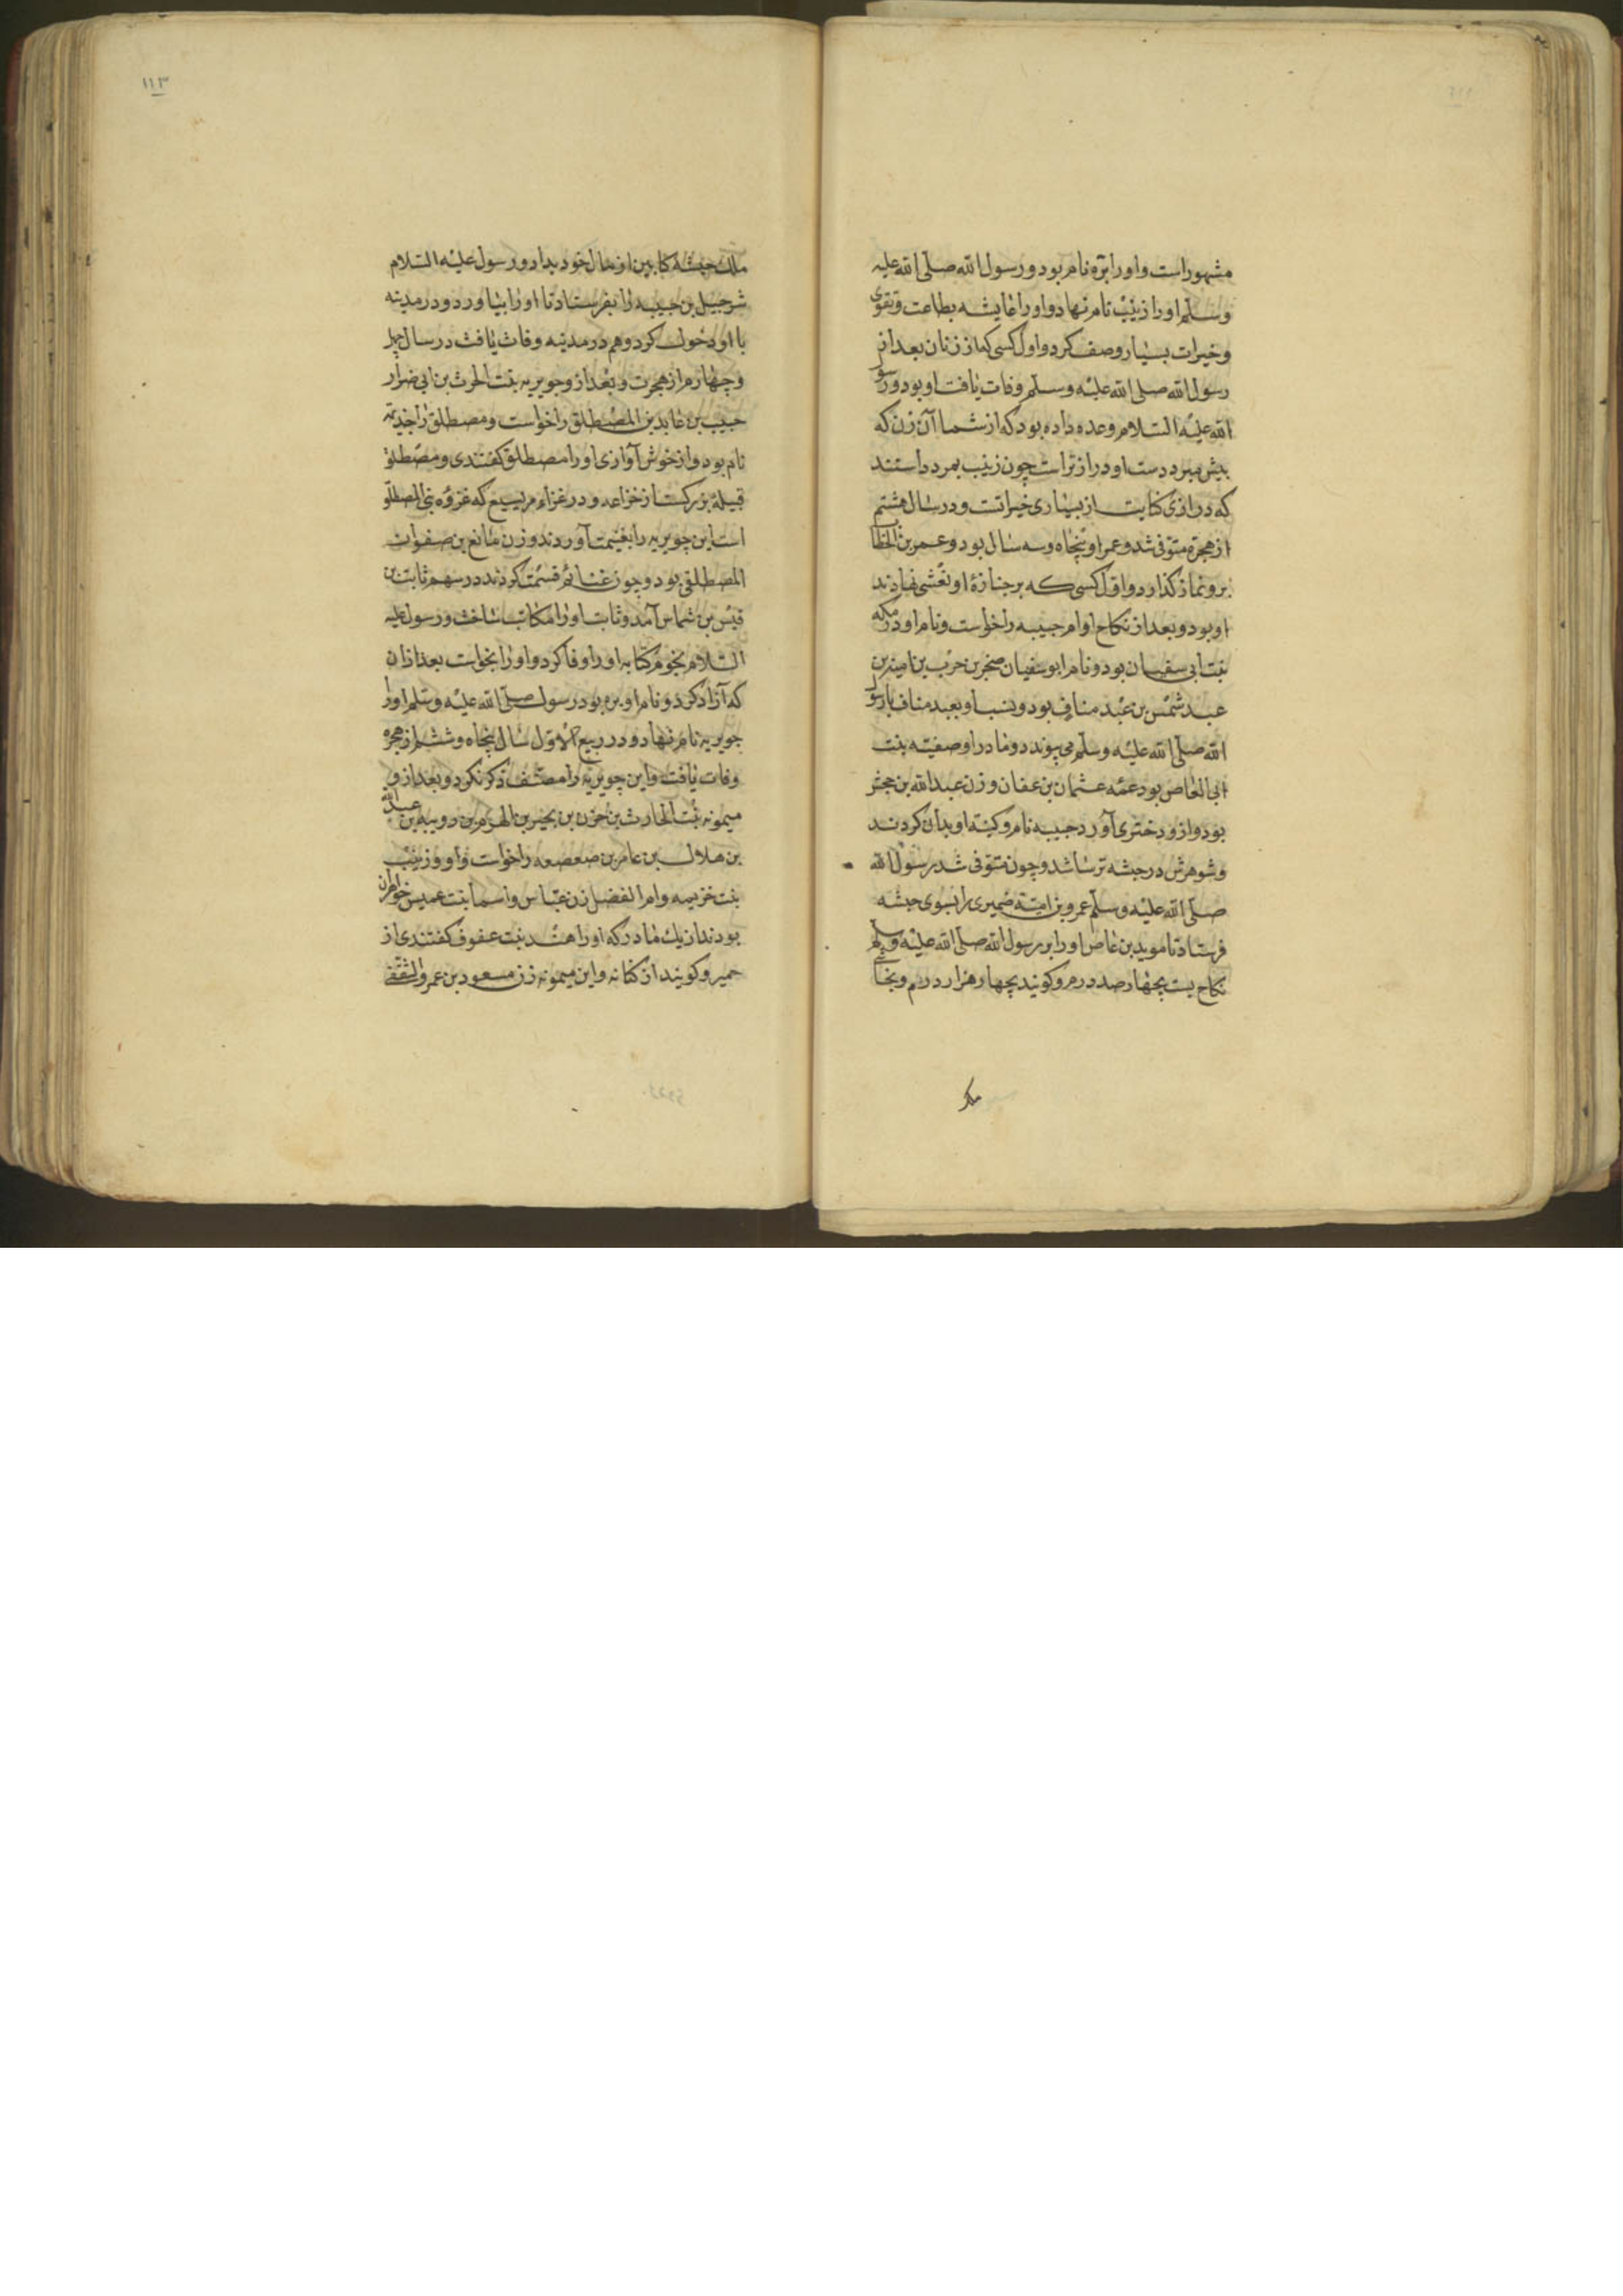 مشهور است و او را برّه نام بود و رسول الله صلّی الله علیه
وسلّم او را زینب نام نهاد و او را عایشه بطاعت و تقوی
و خیرات بسیار وصف کرد و اول کسی که از زنان بعد از
رسول الله صلی الله علیه وسلّم وفات یافت او بود و رسول
الله علیه السّلام وعده داده بود که از شما آن زن که
پیش میرد دست او درازتر است چون زینب بمرد دانستند
که درازی کنایت از بسیاری خیراتست و در سال هشتم
از هجرة متوفی شد و عمر او پنجاه و سه سال بود و عمر بن الخطاب
برو نماز گذارد و اول کسی که بر جنازهٔ او نعشی نهادند
او بود و بعد از نکاح او ام حبیبه را خواست و نام او رمله
بنت ابی سفیان بود و نام ابو سفیان صخر بن حرب بن امیة بن
عبد شمس بن عبد مناف بود و نسب او بعبد مناف با رسول
الله صلّی الله علیه وسلّم می پیوندد و مادر او صفیّه بنت
ابی العاص بود عمّه عثمان بن عفان و زن عبدالله بن جحش
بود و ازو دختری آورد حبیبه نام و کنیة او بدان کردند
و شوهرش در حبشه ترسا شد و چون متوفی شد رسول الله
صلّی الله علیه وسلّم عمرو بن امیّة ضمیری را بسوی حبشه
فرستاد تا موید بن عاص او را بر رسول الله صلّی الله علیه وسلم
نکاح بست بچهار صد درم و کویند بچهار هزار درم و نجاشی
ملک
١١٣
ملک حبشه کابین از مال خود بداد و رسول علیه السّلام
شرحبیل بن حسبه را بفرستاد تا او را بیاورد و در مدینه
با او دخول کرد و هم در مدینه وفات یافت در سال چهل
و چهارم از هجرت و بعد ازو جویریه بنت الحرث بن ابی ضرار
حبیب بن عابد بن المصطلق را خواست و مصطلق را جذیمه
نام بود و از خوش آوازی او را مصطلق کفتندی و مصطلق
قبیلهٔ بزرکست از خزاعه و در غزاء مریسیع که غزوه بنی المصطلق
است این جویریه را بغنیمت آوردند و زن مانع بن صفوان
المصطلقی بود و چون غنائم قسمت کردند در سهم ثابت بن
قیس بن شماس آمد و ثابت او را مکاتب ساخت و رسول علیه
السّلام نجوم کتابه او را وفا کرد و او را بخواست بعد از آن
که آزاد کرد و نام او بره بود رسول صلّی الله علیه وسلم او را
جویریه نام نهاد و در ربیع الاوّل سال پنجاه و ششم از هجره
وفات یافت و این جویریه را مصنّف ذکر نکرد و بعد از و
میمونه بنت الحارث بن حزن بن بجیر بن الهزم بن رویبه بن عبدالله
بن هلال بن عامر بن صعصعه را خواست و او و زینب
بنت خزیمه و ام الفضل زن عبّاس و اسما بنت عمیس خواهران
بودند از یک مادر که او را هند بنت عفوف کفتندی از
حمیر و کویند از کنانه و این میمونه زن مسعود بن عمرو الثقفی